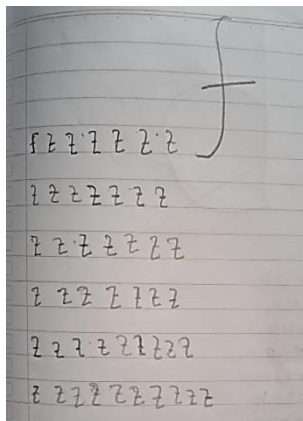 f
f z z z z z z
z z z z z z z
z z z z z z z
z z z z z z z
z z z z z z z z z
z z z z z z z z z z